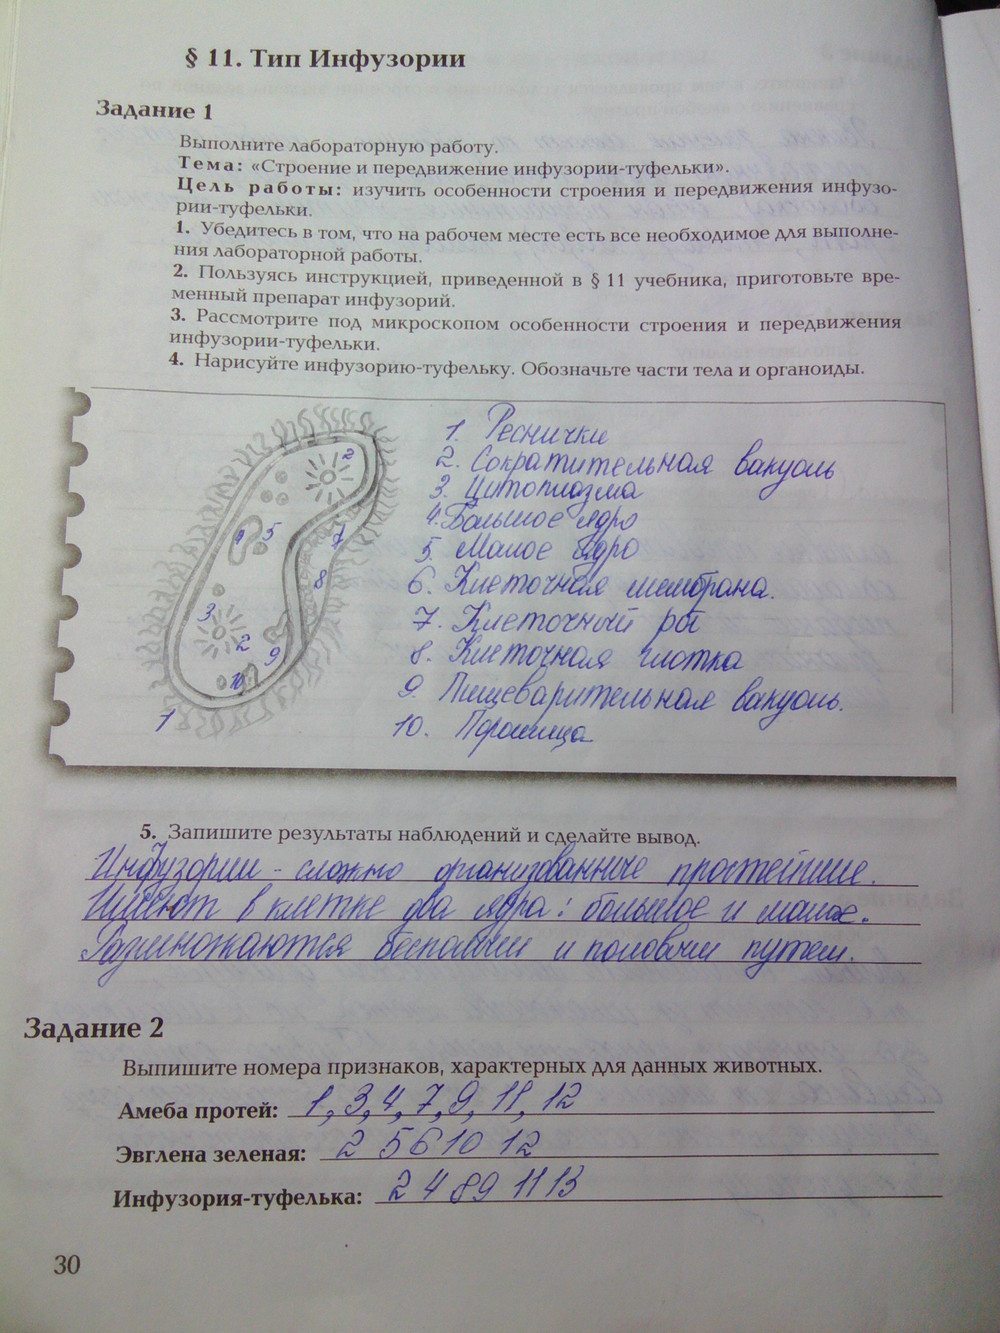 § 11. Тип Инфузории
Задание 1
Выполните лабораторную работу.
Тема: «Строение и передвижение инфузории-туфельки».
Цель работы: изучить особенности строения и передвижения инфузо-
рии-туфельки.
1. Убедитесь в том, что на рабочем месте есть все необходимое для выполне-
ния лабораторной работы.
2. Пользуясь инструкцией, приведенной в § 11 учебника, приготовьте вре-
менный препарат инфузорий.
3. Рассмотрите под микроскопом особенности строения и передвижения
инфузории-туфельки.
4. Нарисуйте инфузорию-туфельку. Обозначьте части тела и органоиды.
1. Реснички
2. Сократительная вакуоль
3. Цитоплазма
4. Большое ядро
5 Малое ядро
6. Клеточная мембрана.
7. Клеточный рот
8. Клеточная глотка
9. Пищеварительная вакуоль.
10. Порошица
2
4 5 7
8
3
2
9
10
1
5. Запишите результаты наблюдений и сделайте вывод.
Инфузории - сложно организованные простейшие.
Имеют в клетке два ядра: большое и малое.
Размножаются бесполым и половым путем.
Задание 2
Выпишите номера признаков, характерных для данных животных.
Амеба протей: 1, 3, 4, 7, 9, 11, 12
Эвглена зеленая: 2 5 6 10 12
Инфузория-туфелька: 2 4 8 9 11 13
30